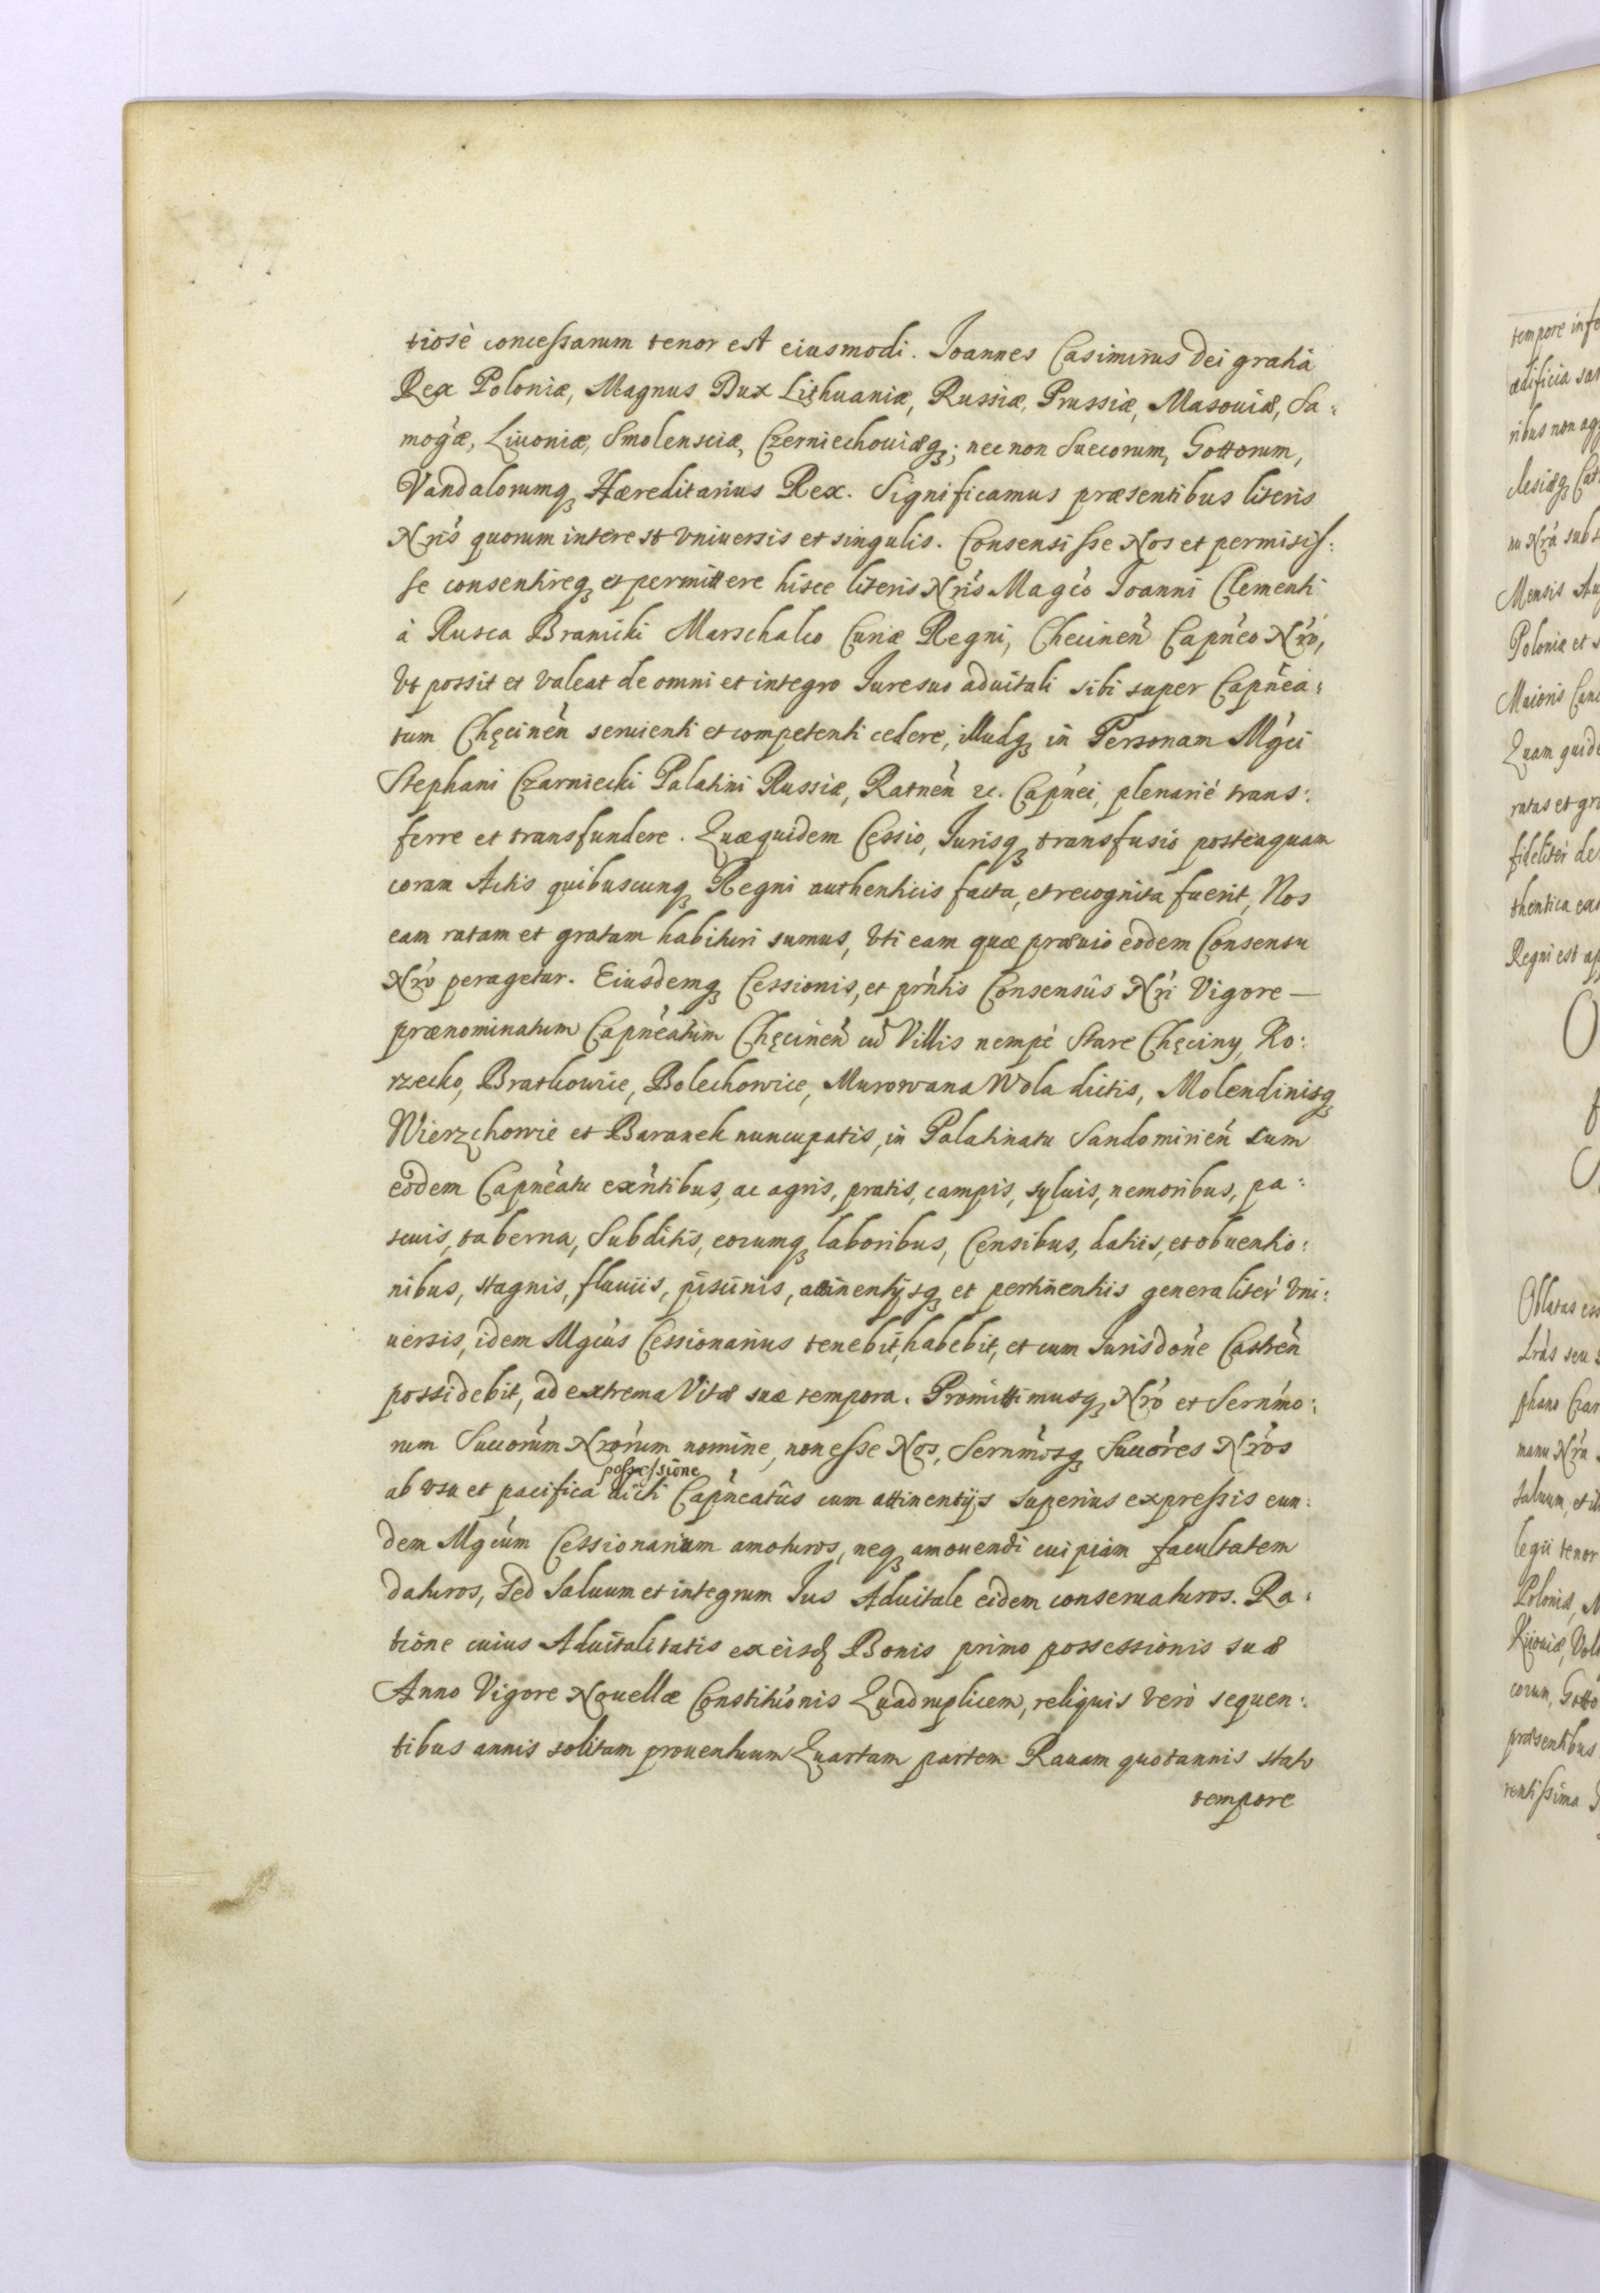 tiosè concessarum tenor est eiusmodi. Joannes Casimirus Dei gratia
Rex Poloniæ, Magnus Dux Lithuaniæ, Russiæ, Prussiæ, Masouiæ, Sa:
mogæ, Liuoniæ, Smolensciæ, Czerniechouiæq3; nec non Suecorum, Gottorum,
Vandalorumq3 Hæreditarius Rex. Significamus præsentibus literis
Nris quorum interest vniuersis et singulis. Consensisse Nos et permisis:
se consentireq3 et permittere hisce literis Nris Magco Joanni Clementi
à Rusca Branicki Marschalco Curiæ Regni, Checinen Capneo Nro,
Vt possit et valeat de omni et integro Jure suo aduitali sibi super Capnea:
tum Chęcinen seruienti et competenti cedere, illudq3 in Personam Mgci
Stephani Czarniecki Palatini Russiæ, Ratnen 2c. Capnei, plenariè trans:
ferre et transfundere. Quæquidem Cessio, Jurisq3 transfusio posteaquam
coram Actis quibuscunq3 Regni authenticis facta, et recognita fuerit, Nos
eam ratam et gratam habituri sumus, Vti eam quæ præuio eodem Consensu
Nro peragetur. Eiusdemq3 Cessionis, et prntis Consensûs Nri Vigore —
prænominatum Capneatum Chęcinen cu Villis nempè Stare Chęciny, Ko:
rzecko, Bratkowice, Bolechowice, Murowana Wola dictis, Molendinisq3
Wierzchowie et Baranek nuncupatis, in Palatinatu Sandomirien cum
eodem Capneatu exntibus, ac agris, pratis, campis, syluis, nemoribus, pa:
scuis, taberna, Subditis, eorumq3 laboribus, Censibus, datiis, et obuentio:
nibus, stagnis, fluuiis, piscinis, attinentijsq3 et pertinentiis generaliter Vni:
uersis, idem Mgcus Cessionarius tenebit, habebit, et cum Jurisdone Castren
possidebit, ad extrema Vitæ suæ tempora. Promittimusq3 Nro et Sernmo:
rum Succorum Nrorum nomine, non esse Nos, Sernmosq3 Succores Nros
possessione
ab vsu et pacifica dicti Capneatûs cum attinentijs superius expressis eun:
dem Mgcum Cessionarium amoturos, neq3 amouendi cuipiam facultatem
daturos, sed Saluum et integrum Jus Aduitale eidem conseruaturos. Ra:
tione cuius Aduitalitatis ex eisd Bonis primo possessionis suæ
Anno Vigore Nouellæ Constitionis Quadruplicem, reliquis verò sequen:
tibus annis solitam prouentuum Quartam partem Rauam quotannis stato
tempore
tempore
ædificia
ribus non
Mensis
Poloniæ et
Maioris
Quam
ratas et
fideliter
thentica
Regni est
Oblatas
seu
manu Nra
saluum, et
legii tenor
Kiiouiæ,
corum,
præsentibus